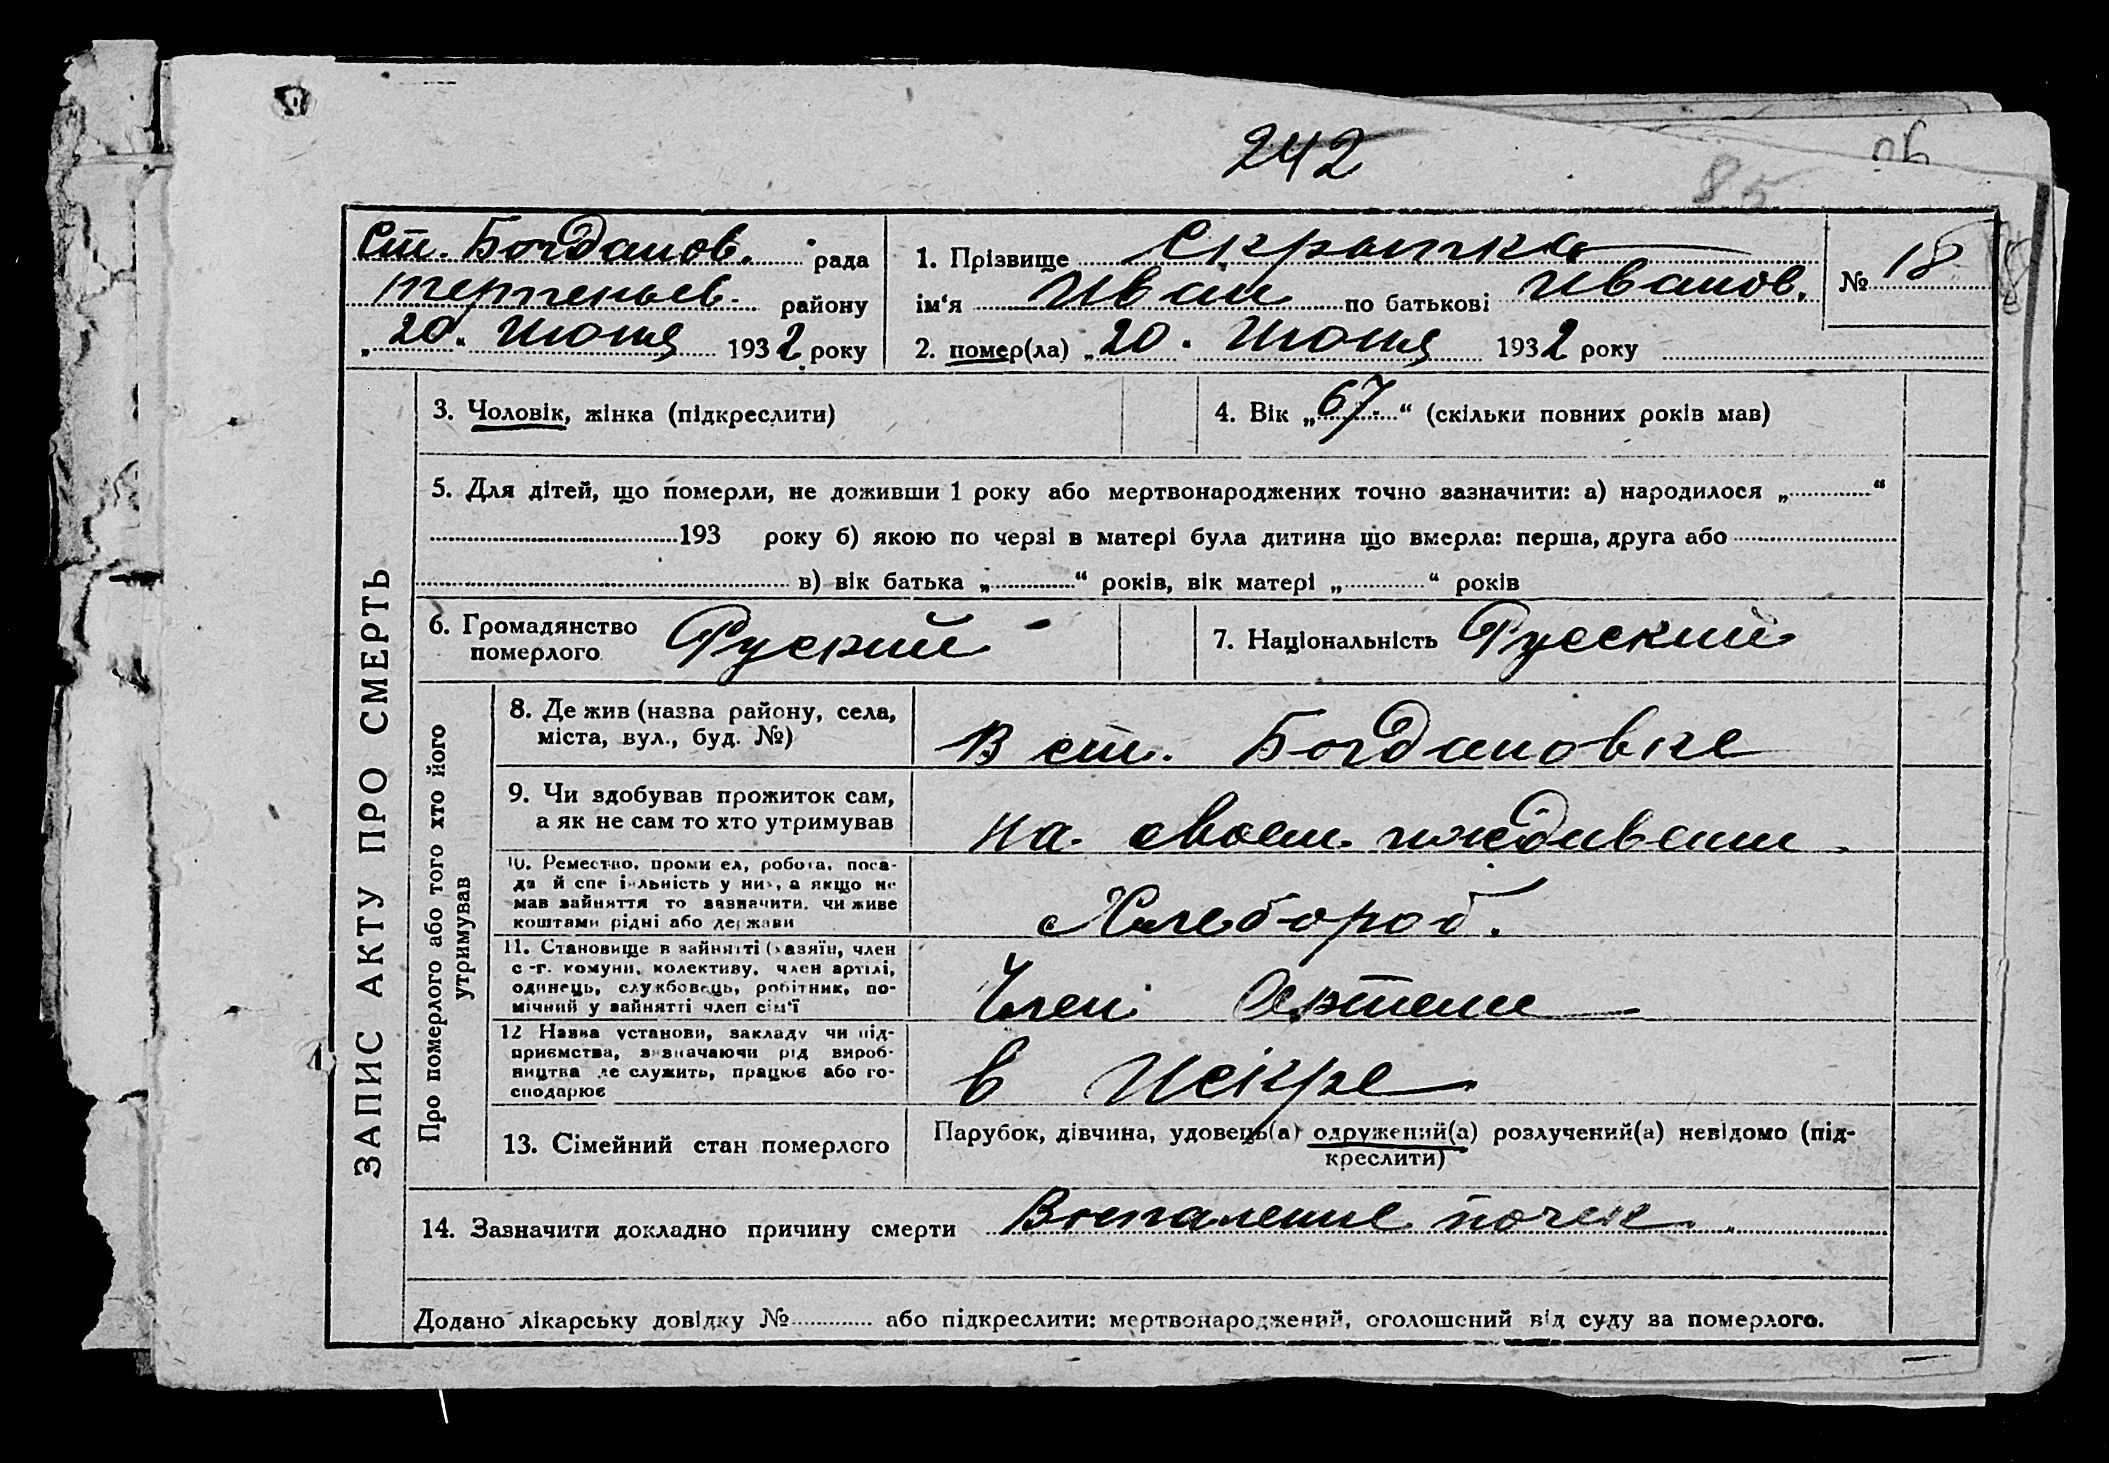 242
85
Ст. Богданов. рада
терпеньев. району
„20“ Июня 1932 року
1. Прізвище Скрыпка
ім‘я Иван по батькові Иванов.
2. помер(ла) „20. Июня 1932 року
№ 18
ЗАПИС АКТУ ПРО СМЕРТЬ
3. Чоловік, жінка (підкреслити)
4. Вік „67.“ (скільки повних років мав)
5. Для дітей, що померли, не доживши 1 року або мертвонароджених точно зазначити: а) народилося „ “
193 року б) якою по черзі в матері була дитина що вмерла: перша, друга або
в) вік батька „ “ років, вік матері „ “ років
6. Громадянство
померлого Руский
7. Національність Русский
Про померлого або того хто його
утримував
8. Де жив (назва району, села,
міста, вул., буд. №)
В ст. Богдановке
9. Чи здобував прожиток сам,
а як не сам то хто утримував
на своем иждивении
10. Ремество, промисел, робота, поса-
да й спеціяльність у них, а якщо не
мав зайняття то зазначити, чи живе
коштами рідні або держави
Хлебороб.
11. Становище в зайнятті (хазяїн, член
с.-г. комуни, колективу, член артілі,
одинець, службовець, робітник, по-
мічний у зайнятті член сім‘ї
Член Артели
12 Назва установи, закладу чи під-
приємства, зазначаючи рід вироб-
ництва де служить, працює або го-
сподарює
в Искре
13. Сімейний стан померлого
Парубок, дівчина, удовець(а) одружений(а) розлучений(а) невідомо (під-
креслити)
14. Зазначити докладно причину смерти Воспаление почек
Додано лікарську довідку № або підкреслити: мертвонароджений, оголошений від суду за померлого.